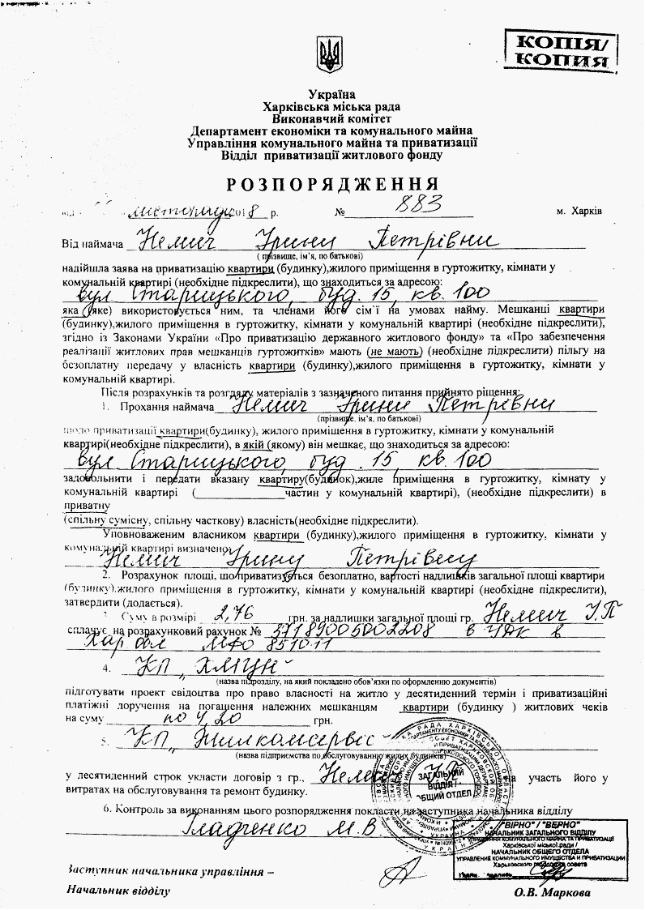 КОПІЯ/
КОПИЯ
Україна
Харківська міська рада
Виконавчий комітет
Департамент економіки та комунального майна
Управління комунального майна та приватизації
Відділ приватизації житлового фонду
РОЗПОРЯДЖЕННЯ
листопада 2018 р. № 883 м. Харків
Від наймача Немич Ірини Петрівни
( прізвище, ім’я, по батькові)
надійшла заява на приватизацію квартири (будинку),жилого приміщення в гуртожитку, кімнати у
комунальній квартирі (необхідне підкреслити), що знаходиться за адресою:
вул Старицького, буд. 15, кв. 100
яка (яке) використовується ним, та членами його сім’ї на умовах найму. Мешканці квартири
(будинку),жилого приміщення в гуртожитку, кімнати у комунальній квартирі (необхідне підкреслити),
згідно із Законами України «Про приватизацію державного житлового фонду» та «Про забезпечення
реалізації житлових прав мешканців гуртожитків» мають (не мають) (необхідне підкреслити) пільгу на
безоплатну передачу у власність квартири (будинку),жилого приміщення в гуртожитку, кімнати у
комунальній квартирі.
Після розрахунків та розгляду матеріалів з зазначеного питання прийнято рішення:
1. Прохання наймача Немич Ірини Петрівни
(прізвище, ім’я, по батькові)
щодо приватизації квартири(будинку), жилого приміщення в гуртожитку, кімнати у комунальній
квартирі(необхідне підкреслити), в якій (якому) він мешкає, що знаходиться за адресою:
вул Старицького, буд. 15, кв. 100
задовольнити і передати вказану квартиру(будинок),жиле приміщення в гуртожитку, кімнату у
комунальній квартирі (____________ частин у комунальній квартирі), (необхідне підкреслити) в
приватну
(спільну сумісну, спільну часткову) власність(необхідне підкреслити).
Уповноваженим власником квартири (будинку),жилого приміщення в гуртожитку, кімнати у
комунальній квартирі визначено Немич Ірину Петрівну
2. Розрахунок площі, що приватизується безоплатно, вартості надлишків загальної площі квартири
(будинку),жилого приміщення в гуртожитку, кімнати у комунальній квартирі (необхідне підкреслити),
затвердити (додається).
3. Суму в розмірі 2,76 грн. за надлишки загальної площі гр. Немич І.П
сплачує на розрахунковий рахунок № 37189005002208 в УДК в
Хар обл МФО 851011
4. КП "ХМЦН"
(назва підрозділу, на який покладено обов’язки по оформленню документів)
підготувати проект свідоцтва про право власності на житло у десятиденний термін і приватизаційні
платіжні доручення на погашення належних мешканцям квартири (будинку ) житлових чеків
на суму по 4,20 грн.
5. КП "Жилкомсервіс"
(назва підприємства по обслуговуванню жилих будинків)
у десятиденний строк укласти договір з гр., Немич участь його у
витратах на обслуговування та ремонт будинку.
6. Контроль за виконанням цього розпорядження покласти на заступника начальника відділу
Гладченко М.В
ЗАГАЛЬНИЙ
ВІДДІЛ /
ОБЩИЙ ОТДЕЛ
"ВІРНО" / "ВЕРНО"
НАЧАЛЬНИК ЗАГАЛЬНОГО ВІДДІЛУ
УПРАВЛІННЯ КОМУНАЛЬНОГО МАЙНА ТА ПРИВАТИЗАЦІЇ
Харківської міської ради /
НАЧАЛЬНИК ОБЩЕГО ОТДЕЛА
УПРАВЛЕНИЕ КОММУНАЛЬНОГО ИМУЩЕСТВА И ПРИВАТИЗАЦИИ
Харьковского городского совета
Заступник начальника управління –
Начальник відділу О.В. Маркова